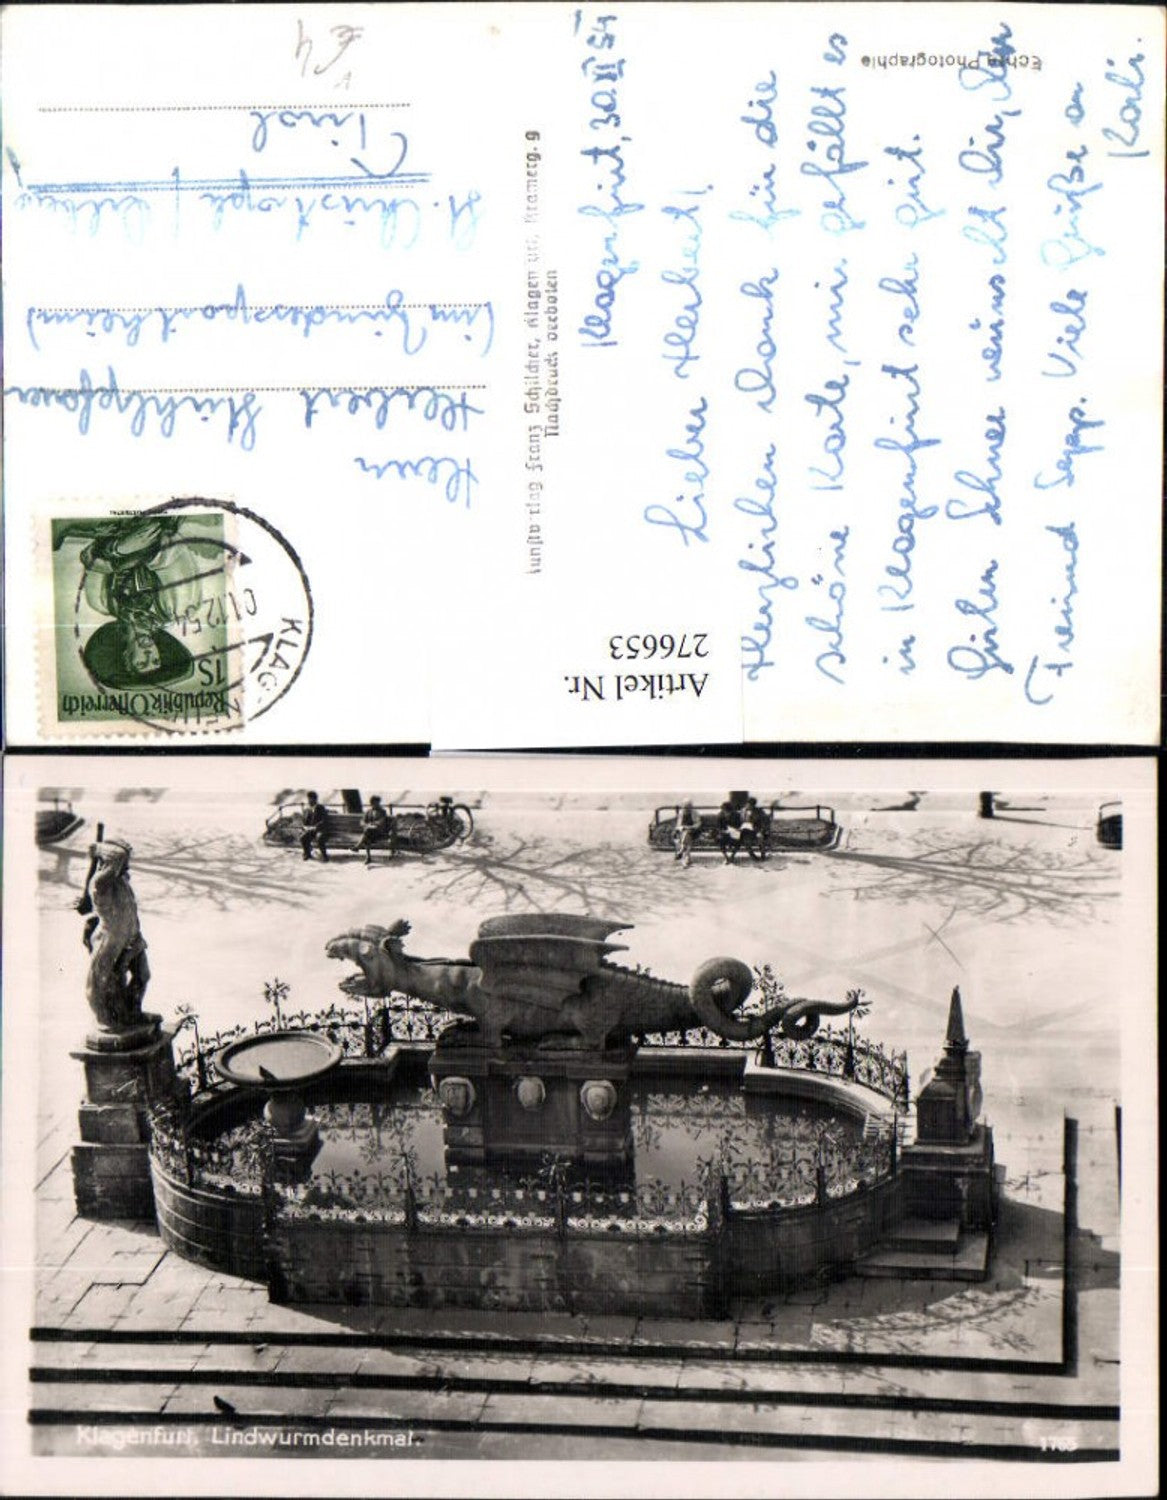 Klagenfurt, 30.XI.54
Lieber Herbert!
Herzlichen Dank für die
schöne Karte, mir gefällt es
in Klagenfurt sehr gut.
Guten Schnee wünscht Dir, Dein
Freund Sepp. Viele Grüße an
Karli.
Echte Photographie
Kunstverlag Franz Schilcher, Klagenfurt, Kramerg. 9
Nachdruck verboten
Artikel Nr.
276653
Republik Österreich
1S
KLAG
01.12.54
Herrn
Herbert
(im Bundessportheim)
St. Christoph / Arlberg
Tirol
€4
Klagenfurt. Lindwurmdenkmal.
1765